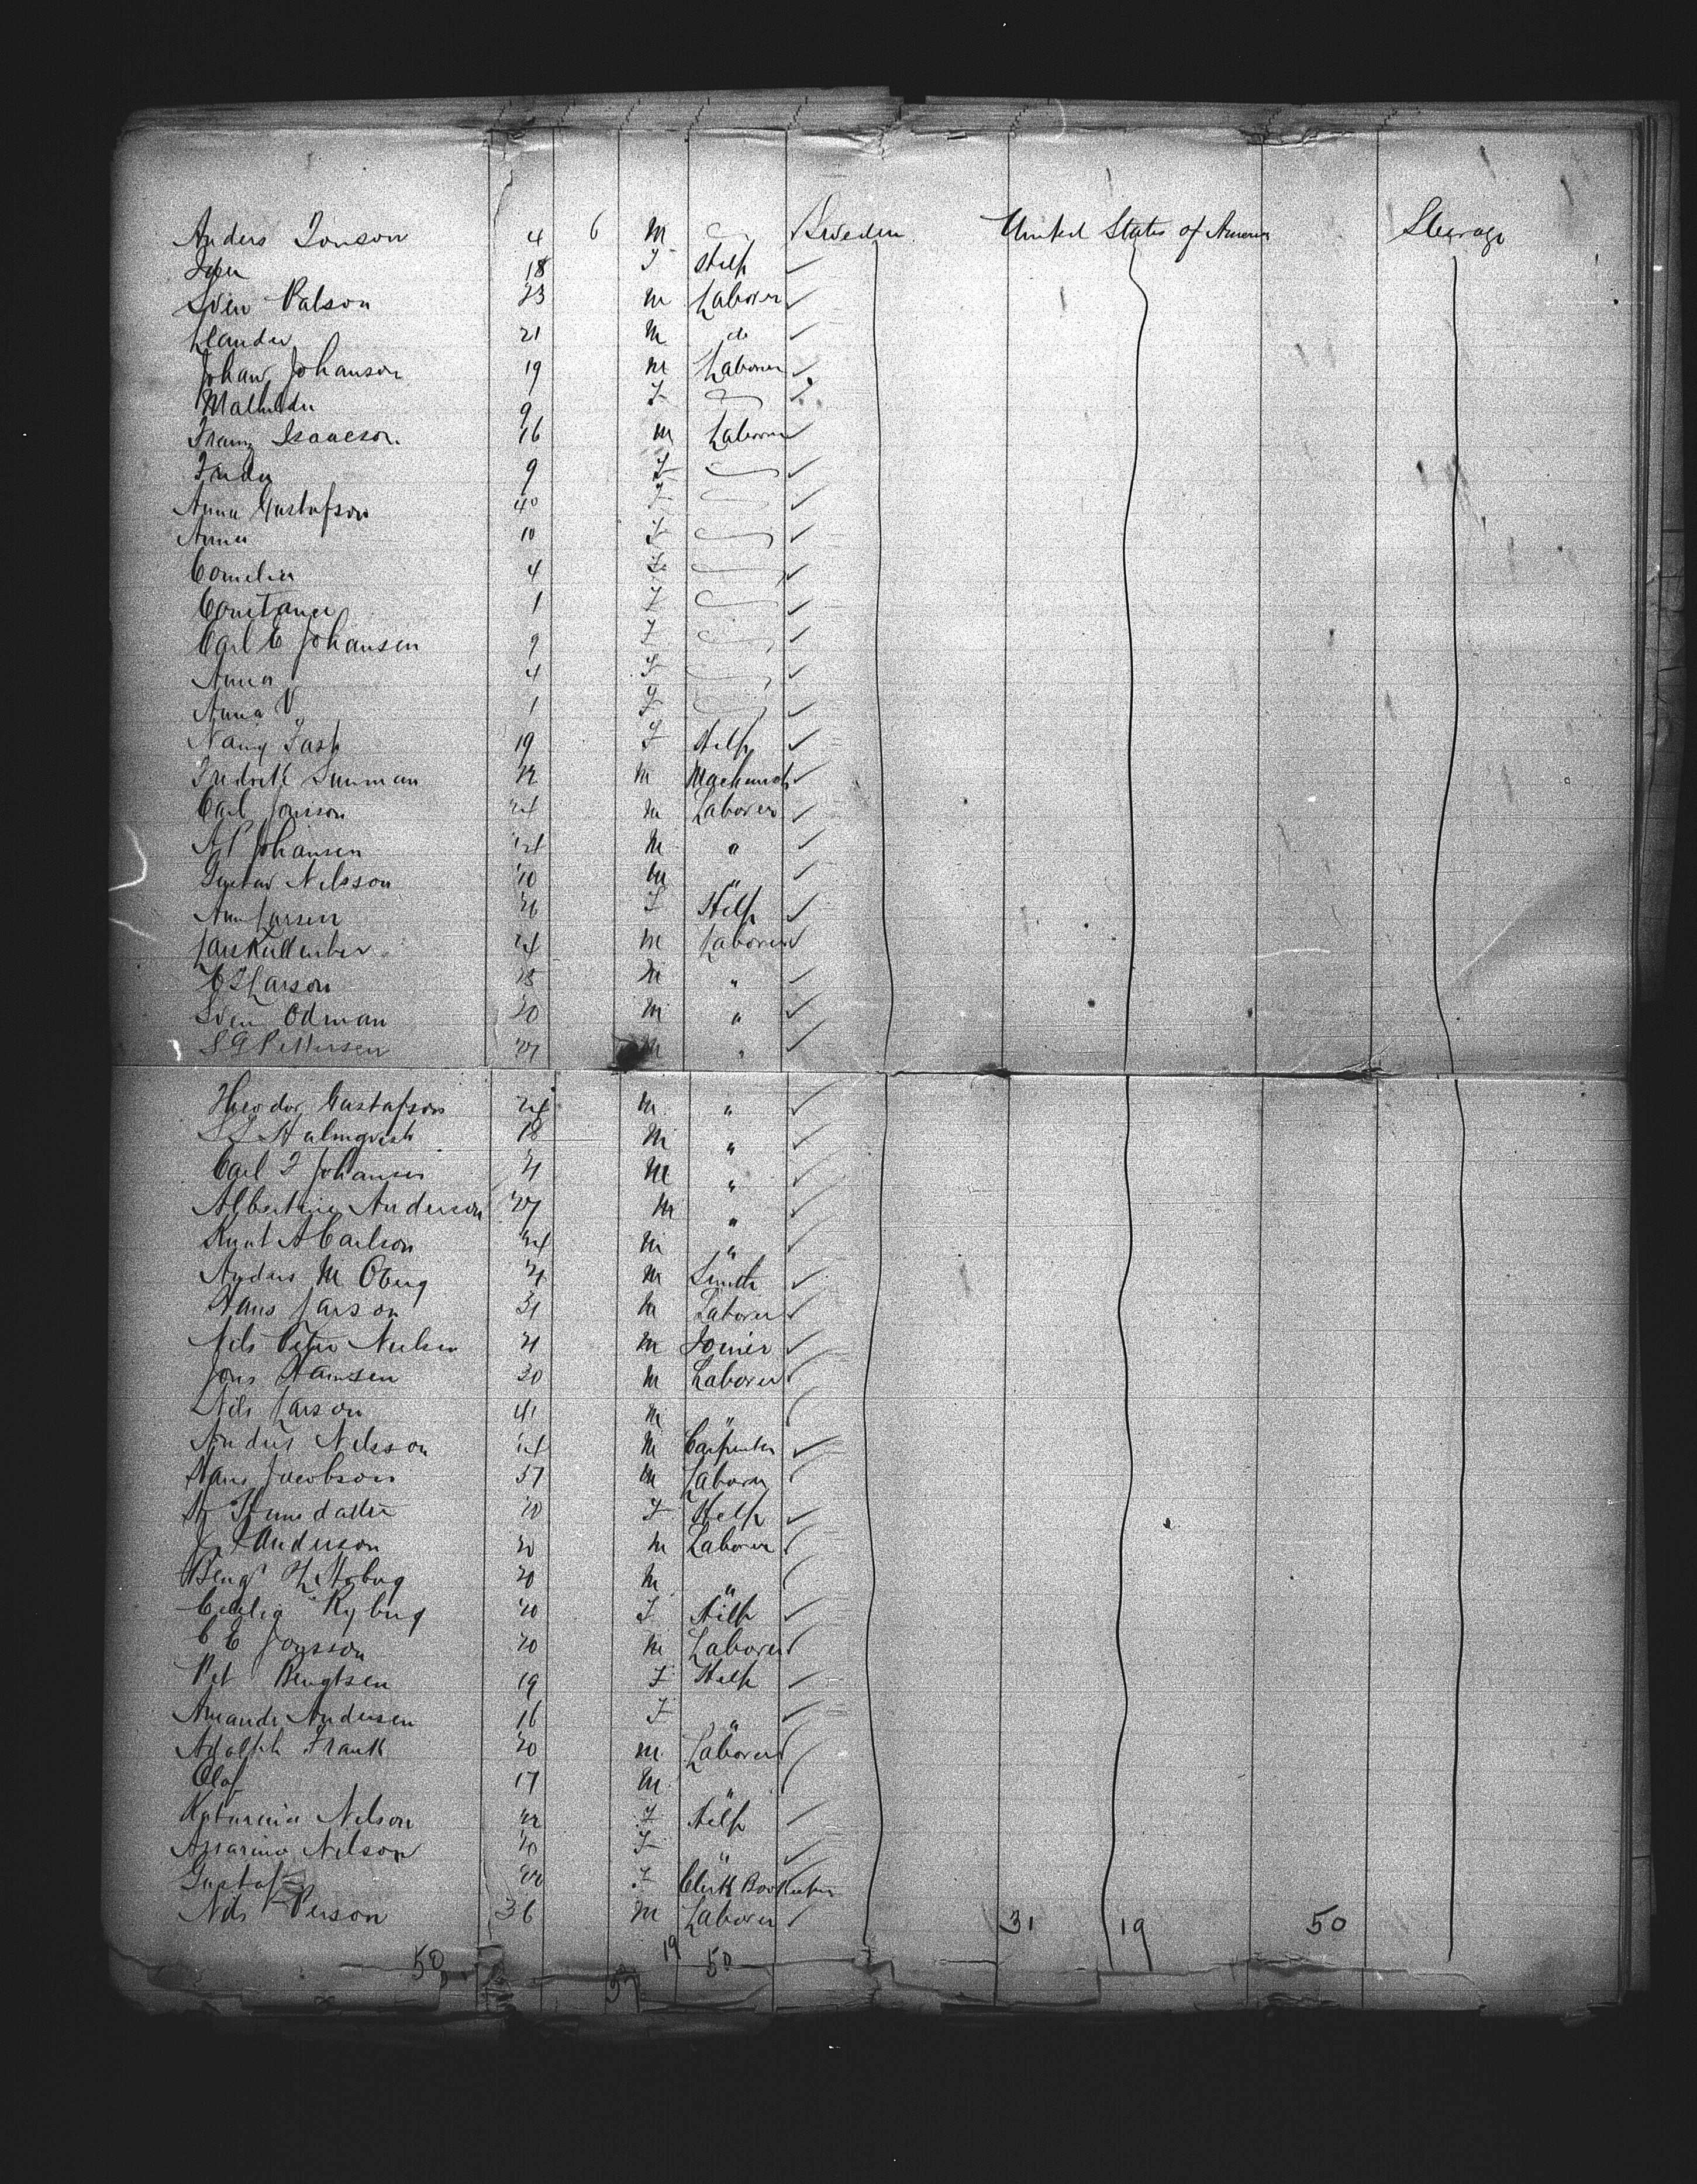 Anders Jonson 4 6 M Sweden United States of America Steerage
18 F Help
Sven Palson 23 M Laborer
21 M do
Johan Johanson 19 M Laborer
9 F
Franz Isaacson 16 M Laborer
9 F
Anna Gustafson 40 F
Anna 10 F
Cornelia 4 F
Constance 1 F
Carl E Johansen 9 F
Anna 4 F
Anna V 1 F
19 F Help
M Machinist
Carl Jonsson 24 M Laborer
A P Johansen 24 M "
Gustav Nilsson 20 M "
Ann Larsen 26 F Help
Lars Kullenber 24 M Laborer
C F Larson 28 M "
Sven Odman 20 M "
S G Pettersen 27 M "
Theodor Gustafson 24 M "
Halmqvist 18 M "
Carl F Johansen 21 M "
Albertine Anderson 27 M "
Knut A Carlson 24 M "
Anders M Oberg 21 M Smith
Hans Larson 31 M Laborer
Nils Peter Nielsen 21 M Joiner
Jons Hansen 30 M Laborer
Nils Larson 41 M "
Anders Nilsson 24 M Carpenter
Hans Jacobson 57 M Laborer
20 F Help
Anderson 20 M Laborer
Bengt 20 M "
Cecilia Ryberg 20 F Help
C E Jonsson 20 M Laborer
Pet Bengtsen 19 F Help
Amanda Andersen 16 F "
Adolph Frank 20 M Laborer
Olof 17 M "
Katarina Nelson 22 F Help
Nelson 20 F "
Gustaf F Clerk Bookkeeper
Nils Person 36 M Laborer 31 19 50
50 19 50